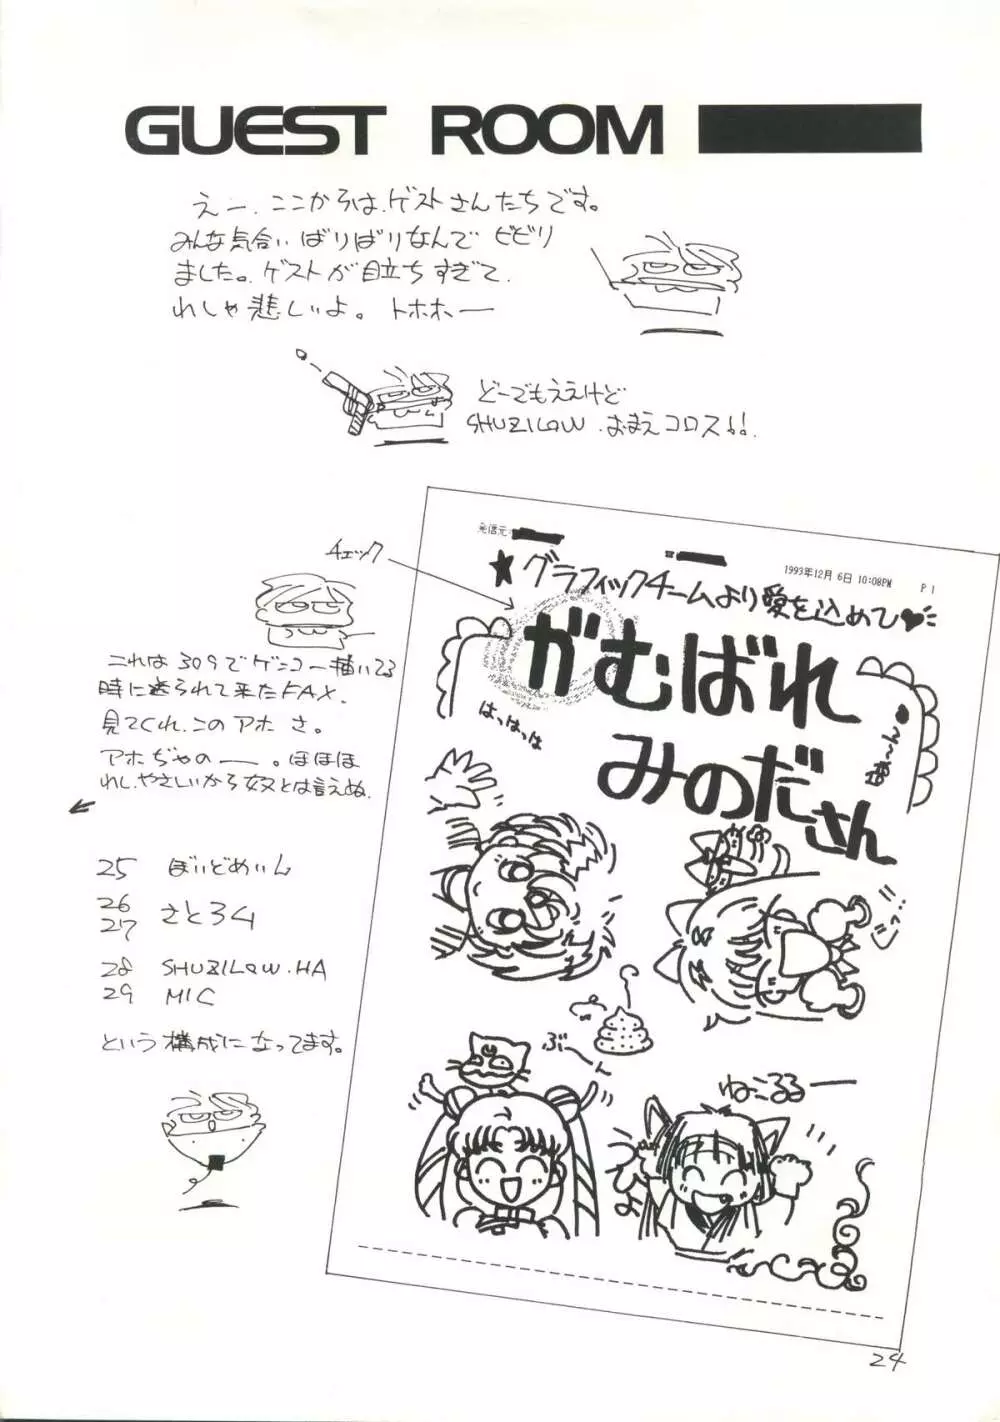 GUEST ROOM
えー、ここからは、ゲストさんたちです。
みんな気合いばりばりなんでビビり
ました。ゲストが目立ちすぎて、
れしゃ悲しいよ。トホホー
どーでもええけど
SHUZILOW、おまえコロス!!
チェック
これは309でゲンコー描いてる
時に送られて来たFAX.
見てくれ、このアホさ。
アホぢゃのー。ほほほ
れし、やさしいから奴とは言えぬ.
25 ぼいどめいん
26
27 さとろム
28 SHUZILOW.HA
29 MIC
という構成になってます。
発信元:
1993年12月 6日 10:08PM P1
★グラフィックチームより愛を込めて♥
がむばれ
みのださん
はっはっは
あ〜ん
じっ…
ぶ〜ん
ねこるるー
24